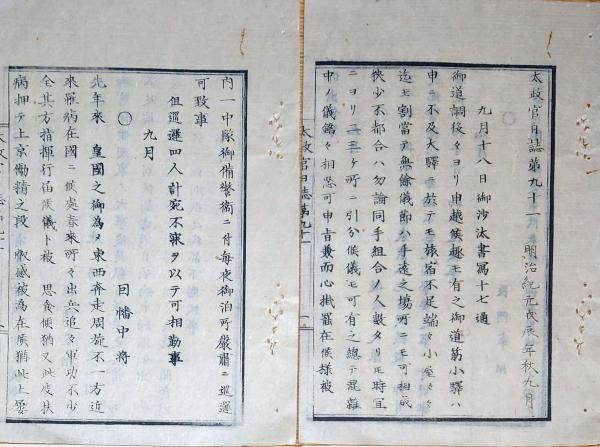 太政官日誌第九十一　明治紀元戊辰年秋九月
九月十八日御沙汰書寫十七通
御道調後々ヨリ申越候趣モ有之御道筋小驛ハ
申ニ不及大驛ニ於テモ旅宿不足端々小屋々々
迄モ割當テ無餘儀節ハ手遠之場所ニモ可相成
狹少不都合ハ勿論同手組合ノ人數タリトモ時宜
ニヨリ二三ケ所ニ引分候儀モ可有之總テ混雜
中ノ儀篤々相忍可申旨兼而心掛罷在候樣被
太政官日誌第九十一
内一中隊御備警衞ニ付每夜御泊所嚴肅ニ巡邏
可致事
但巡邏四人計宛不寐ヲ以テ可相勤事
九月
〇　因幡中將
先年來　皇國之御為メ東西奔走周旋不一方近
來罹病在國ニ候處春來所々出兵追々軍功不少
全其方指揮行届候儀ト被　思食候猶又此度扶
病押テ上京勵精之段　叡感被為在候猶此上